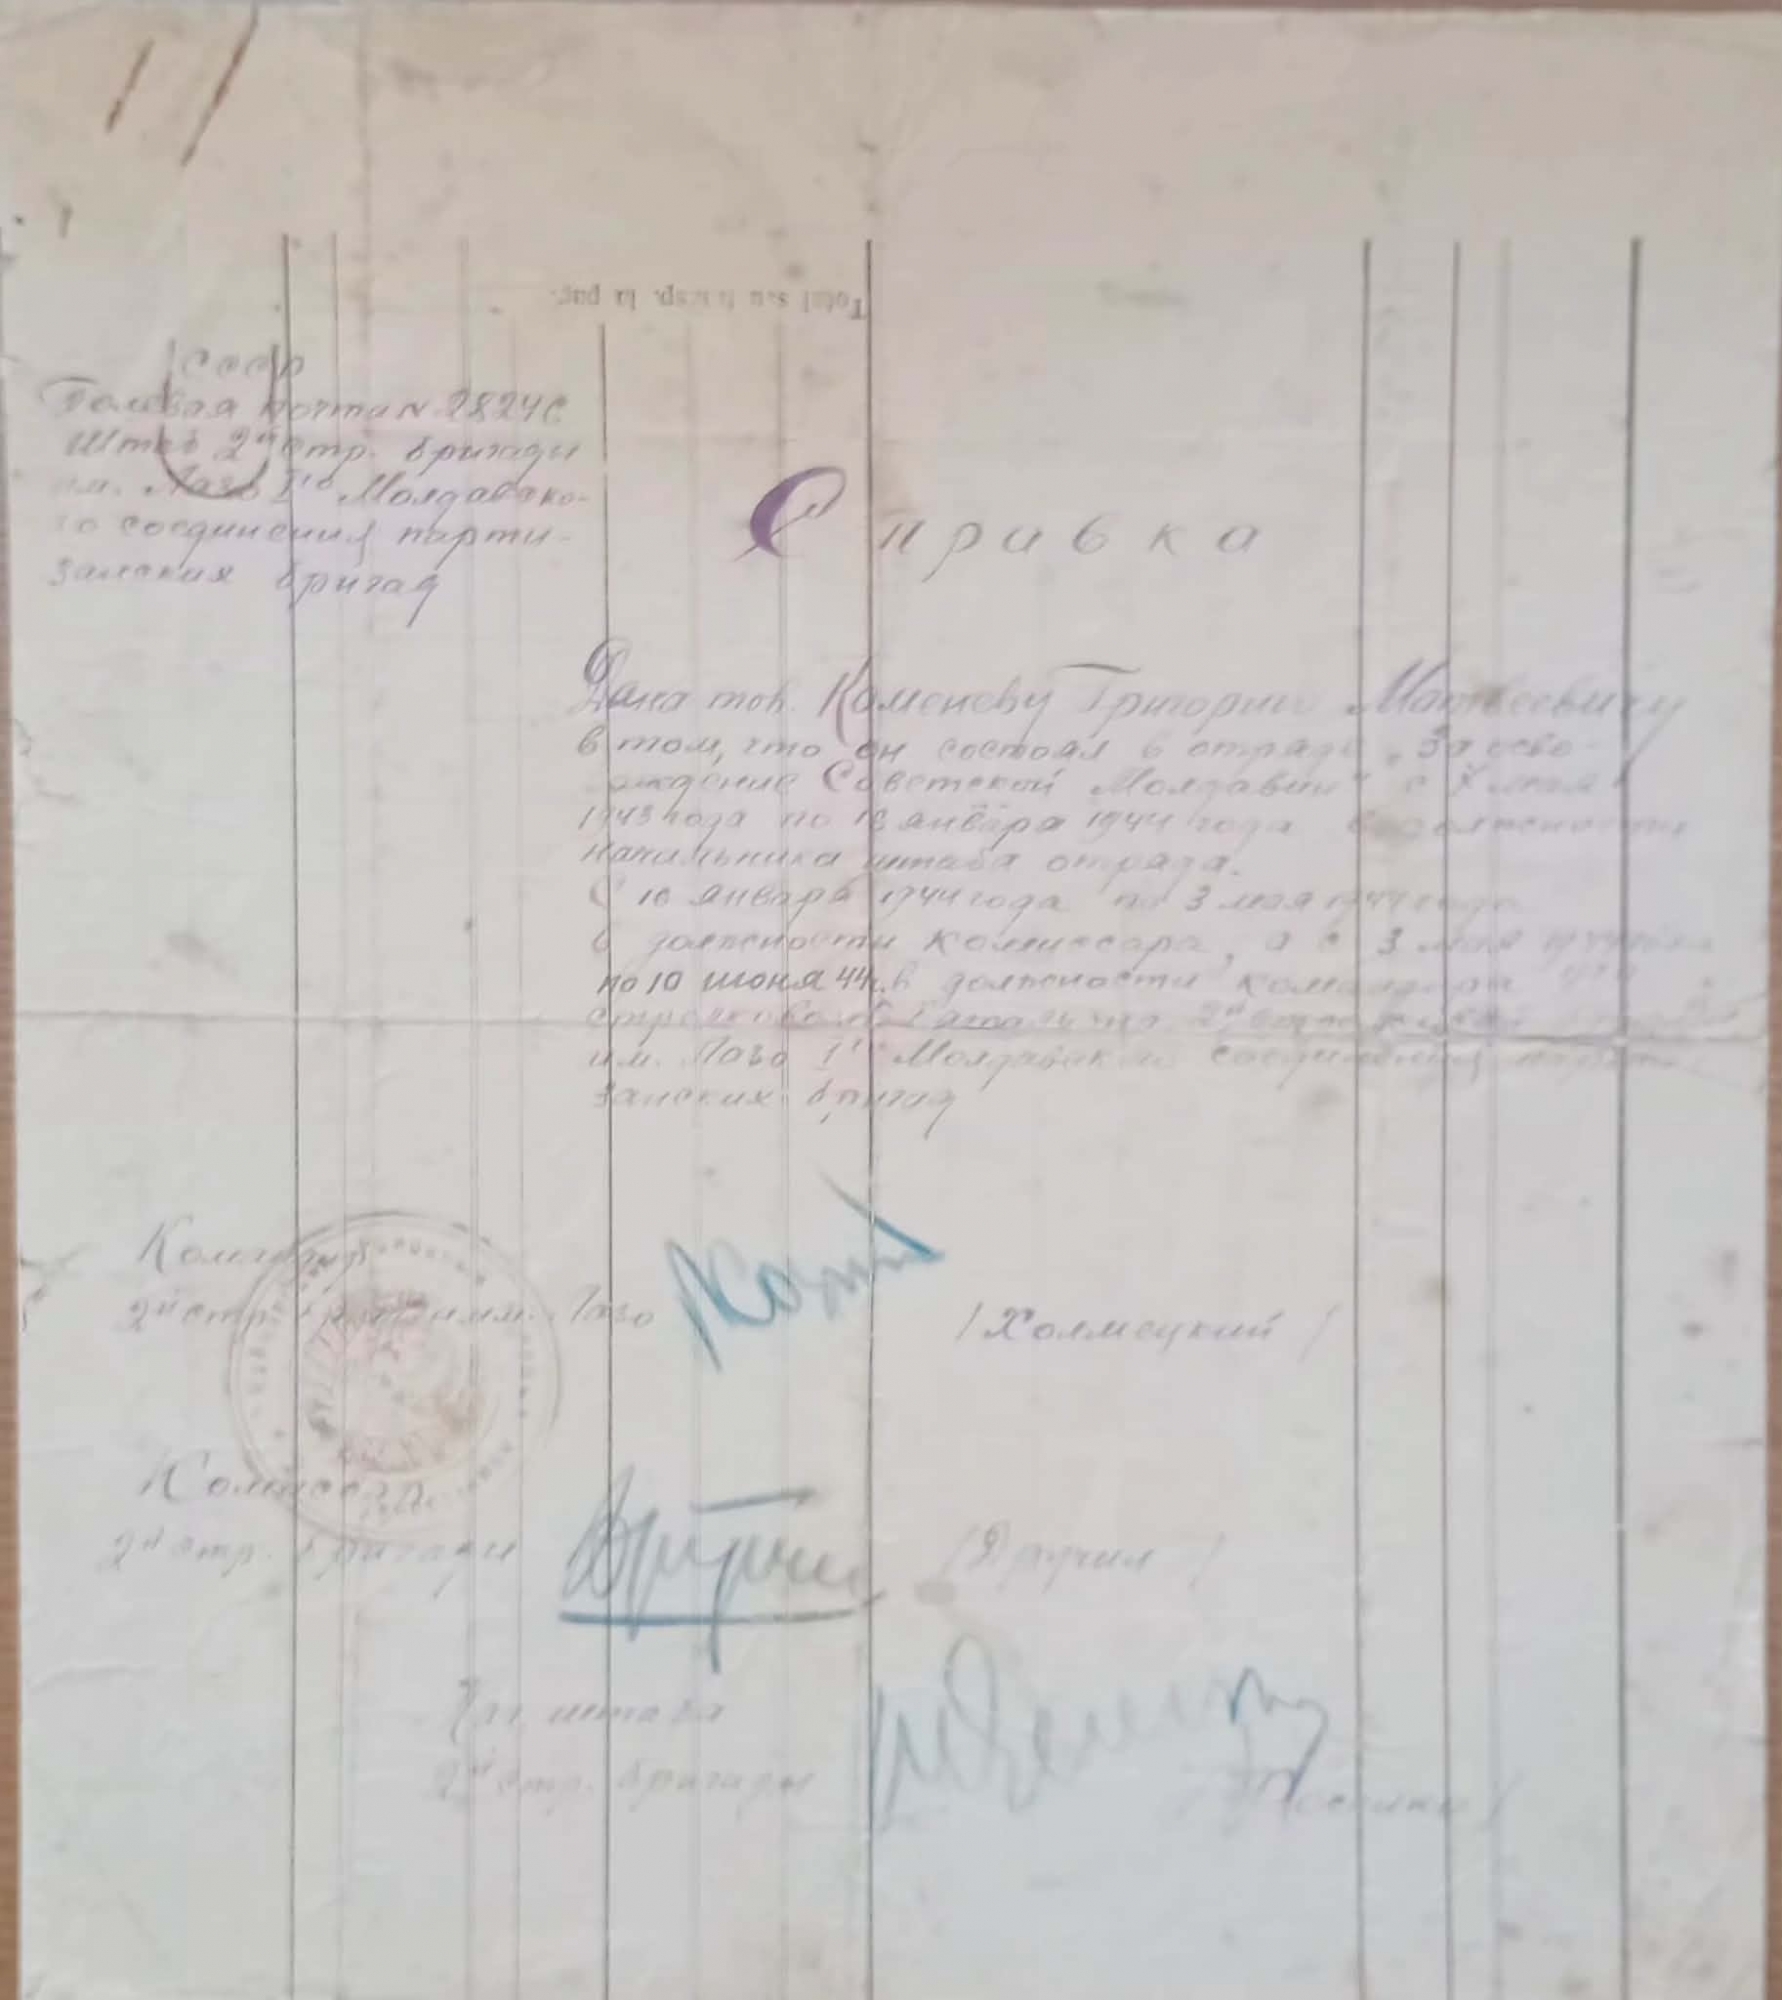 Total sau transp. la pag.
СССР
Полевая почта N. 2824С
Штаб 2й стр. бригады
им. Лазо Iго Молдавско-
го соединения парти-
занских бригад
Справка
Дана тов. Каменеву Григорию Матвеевичу
в том, что он состоял в отряде „За осво-
ождение Советской Молдавии" с мая
1943 года по 18 января 1944 года в должности
начальника штаба отряда.
С 18 января 1944 года по 3 мая 1944 года
в должности комиссара, а с 3 мая 1944 года
по 10 июня 44г. в должности командира
стрелкового батальона 2й стрелковой бригады
им. Лазо Iго Молдавского соединения парти-
занских бригад
Командир
2й стр. бригады им. Лазо /Холмецкий/
Комиссар
2й стр. бригады /Драучил/
Нач. штаба
2й стр. бригады